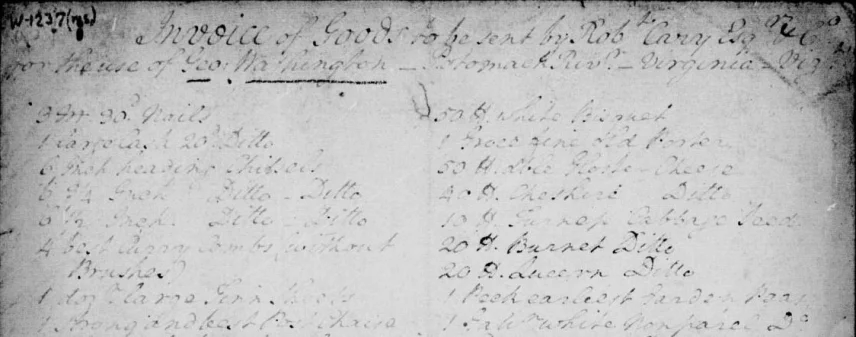 W-1237 (ms)
Invoice of Goods to be sent by Robt. Cary Esqr. & Co
for the use of Geo: Washington — Potomack Rivr. — Virginia — Vizt.
30d. Nails
1 large Cask 20d. Ditto
6 Inch heading Chissels
6 3/4 Inch Ditto — Ditto
6 1/2 Inch Ditto — Ditto
4 best Curry Combs (without
Brushes)
1 dozn. large Tinn Sheets
1 strong and best Post Chaise
50 lb. white Biscuet
1 Groce fine old Porter
50 lb. dble Gloster Cheese
40 lb. Cheshire Ditto
10 lb. Turnep Cabbage Seed
20 lb. Burnet Ditto
20 lb. Lucern Ditto
1 Peck earliest Garden Peas
1 white Nonparel Do